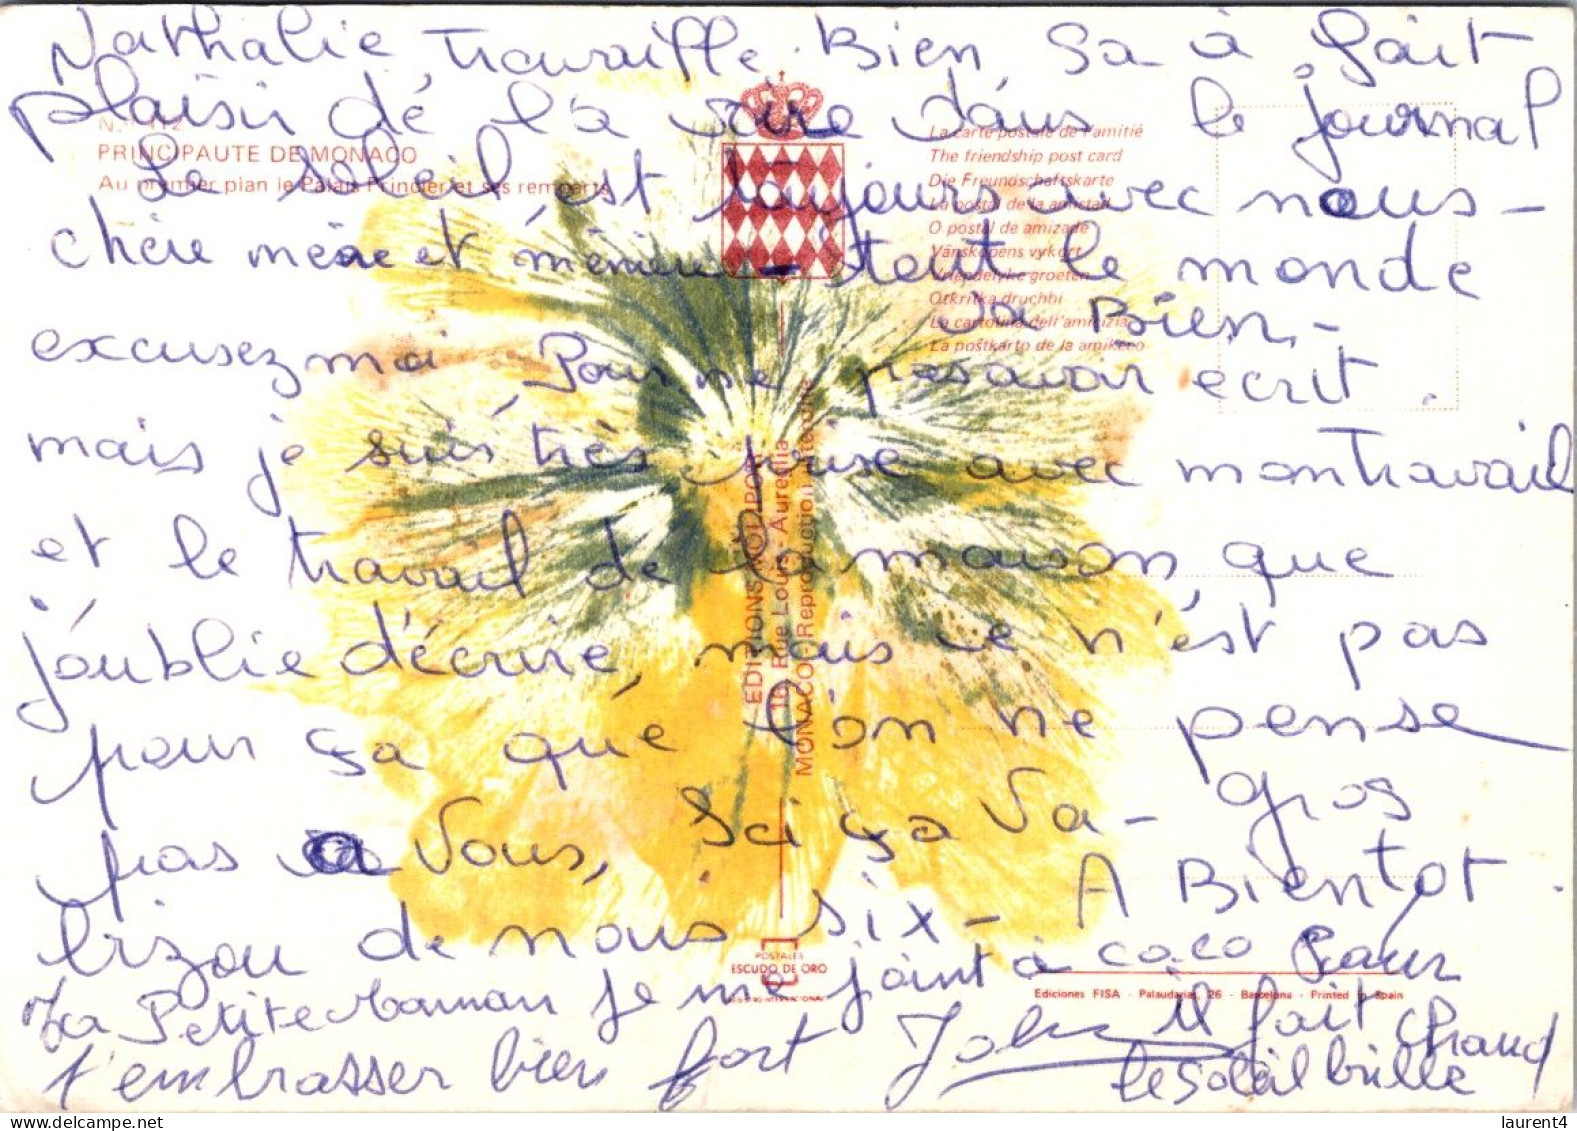 Nathalie, travaille Bien, Sa à fait
plaisir dé la lire dans le journal
Le soleil est toujours avec nous -
chère mère et mémère - tout le monde
va Bien, -
excusez moi, Pour ne pas avoir écrit.
mais je suis très prise avec mon travail
et le travail de la maison, que
j'oublie d'écrire, mais ce n'est pas
pour ça que l'on ne pense
pas a Vous, Ici ça Va - gros
bizou de nous six - A Bientot.
Ta Petite maman je me joint à coco Pour
t'embrasser bien fort il fait chaud
le Soleil brille
N.º 112
PRINCIPAUTE DE MONACO
Au premier plan le Palais Princier et ses remparts
La carte postale de l'amitié
The friendship post card
Die Freundschaftskarte
La postal de la amistad
O postal de amizade
Vänskapens vykort
Vriendelyke groeten
Otkritka druchbi
La cartolina dell'amicizia
La poŝtkarto de la amikeco
EDITIONS MOLIPOR
16, Rue Louis - Aureglia
MONACO Reproduction interdite
POSTALES
ESCUDO DE ORO
Ediciones FISA - Palaudarias, 26 - Barcelona - Printed in Spain
laurent4